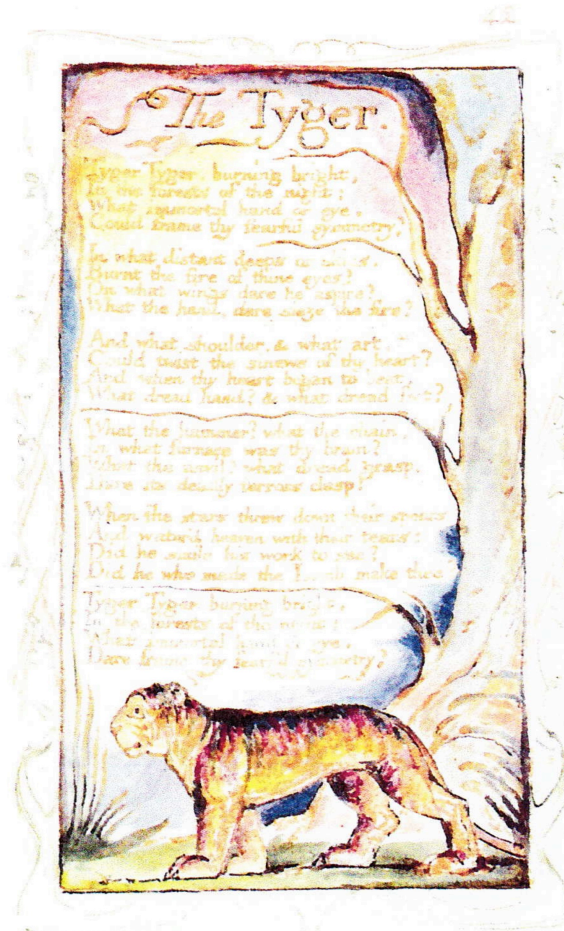 42
The Tyger.
Tyger Tyger, burning bright,
In the forests of the night;
What immortal hand or eye,
Could frame thy fearful symmetry?
In what distant deeps or skies,
Burnt the fire of thine eyes?
On what wings dare he aspire?
What the hand, dare sieze the fire?
And what shoulder, & what art,
Could twist the sinews of thy heart?
And when thy heart began to beat,
What dread hand? & what dread feet?
What the hammer? what the chain,
In what furnace was thy brain?
What the anvil? what dread grasp,
Dare its deadly terrors clasp?
When the stars threw down their spears
And water'd heaven with their tears:
Did he smile his work to see?
Did he who made the Lamb make thee
Tyger Tyger burning bright,
In the forests of the night:
What immortal hand or eye,
Dare frame thy fearful symmetry?